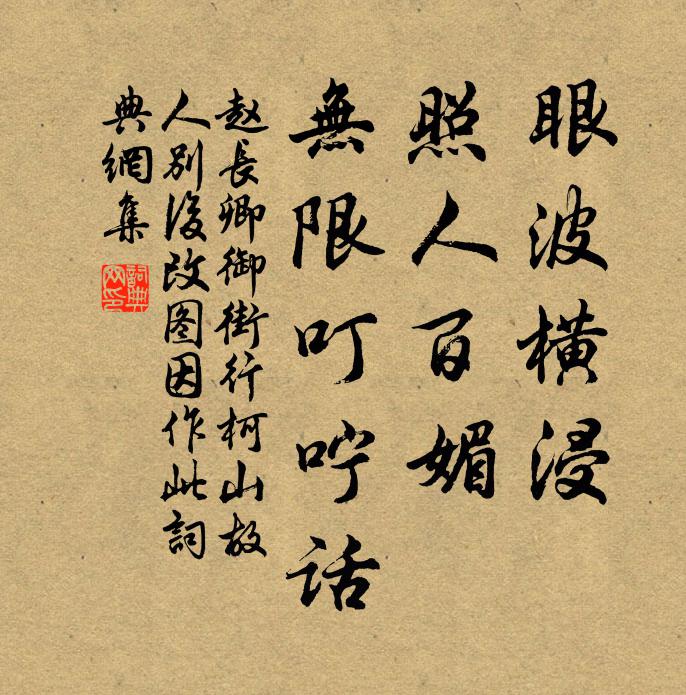 眼波横浸
照人百媚
無限叮咛話
赵長卿御街行柯山故
人别後改图因作此詞
典網集
詞典
网印